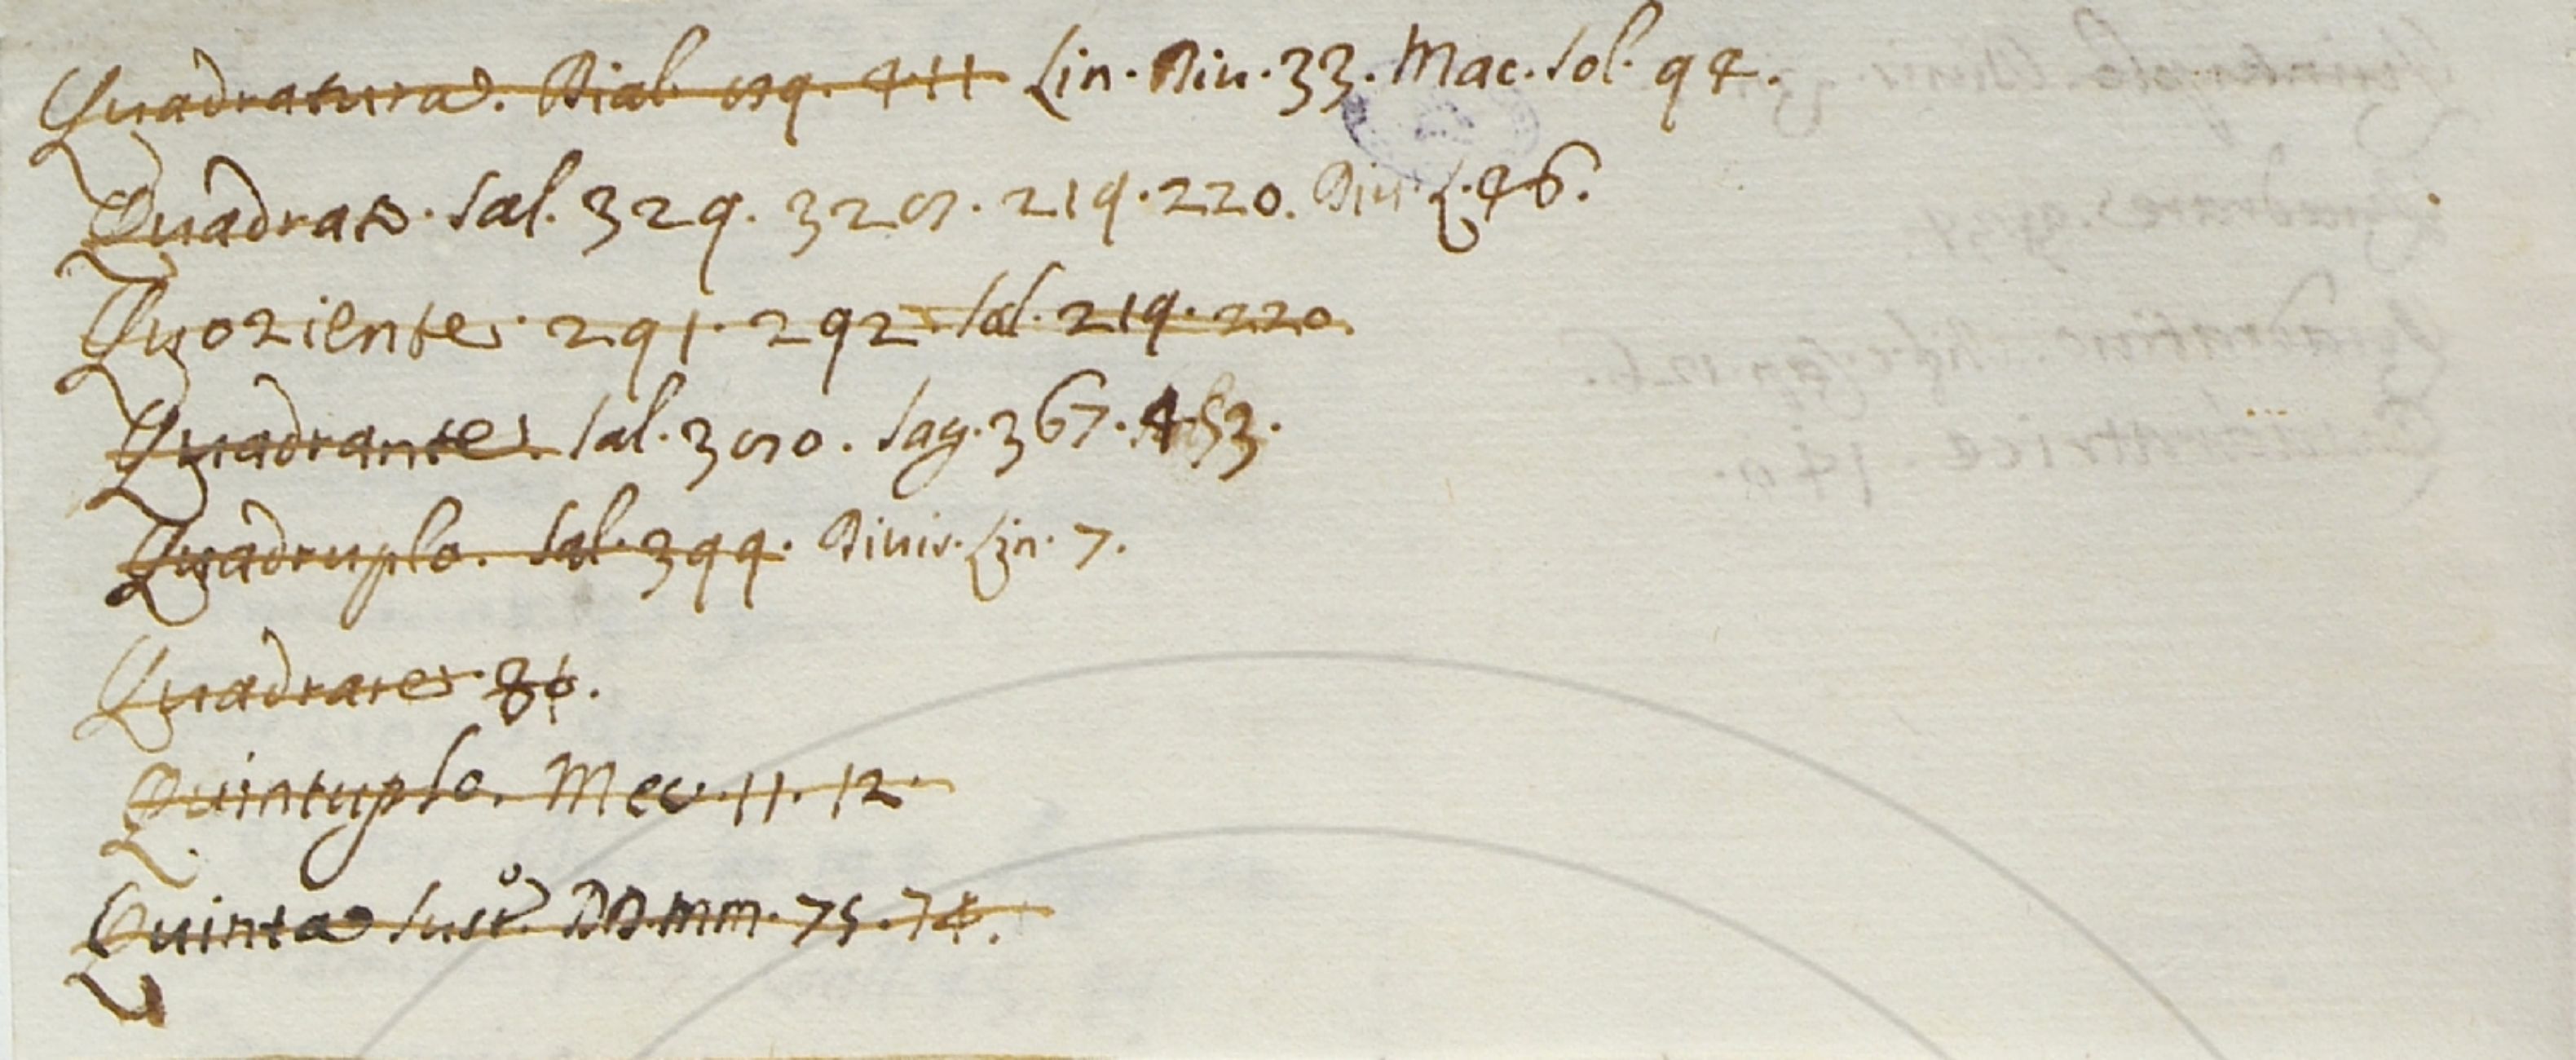 Quadratura. Dial. 59. 411 Lin. Diu. 33. Mac. Sol. 94.
Quadrato. Sal. 329. 325. 219. 220. Diu. L. 46.
Quoziente. 291. 292. Sal. 219. 220.
Quadrante. Sal. 350. Sag. 367. 453.
Quadruplo. Sal. 399. Diuis. Lin. 7.
Quadrare.
Quintuplo. Mec. 11. 12.
Quinta Sust.º DD. mm. 75. 74.